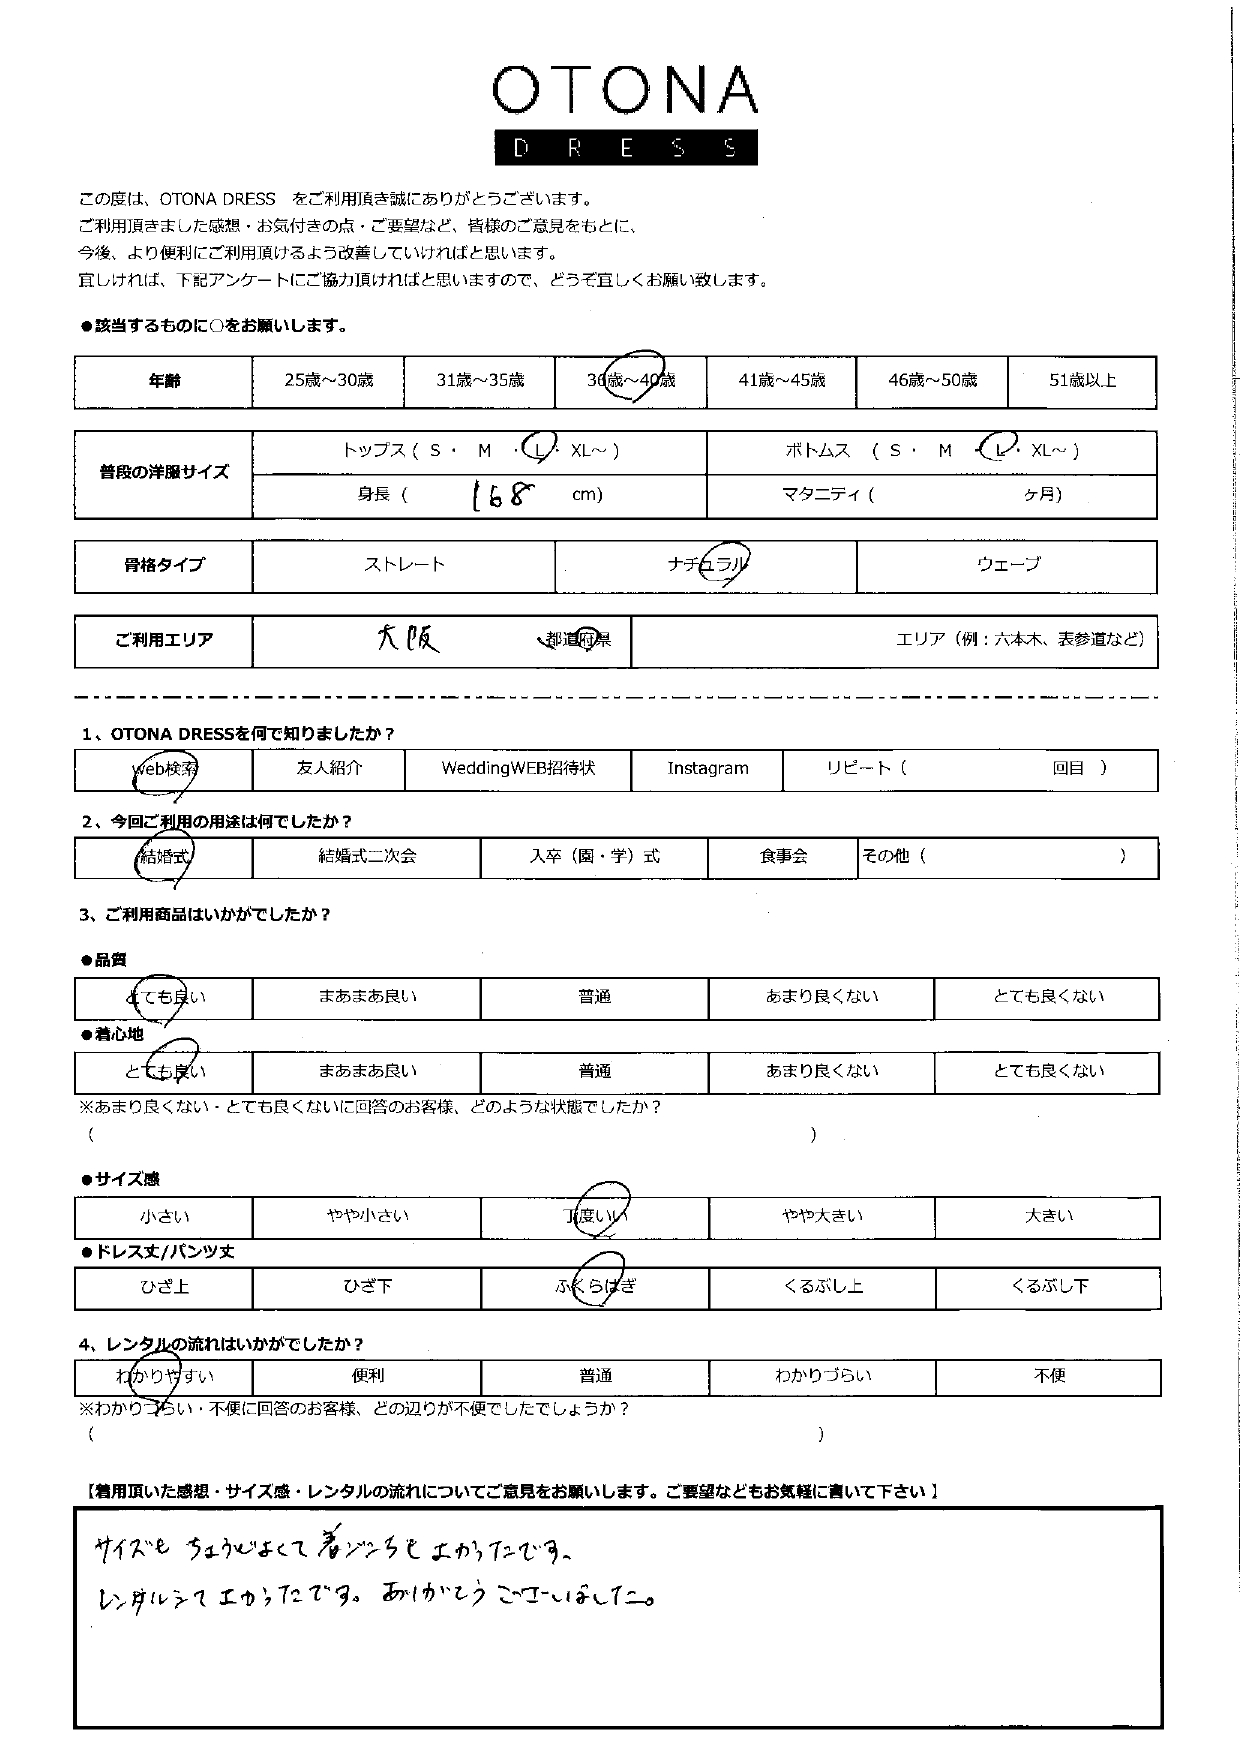 OTONA
DRESS
この度は、OTONA DRESS　をご利用頂き誠にありがとうございます。
ご利用頂きました感想・お気付きの点・ご要望など、皆様のご意見をもとに、
今後、より便利にご利用頂けるよう改善していければと思います。
宜しければ、下記アンケートにご協力頂ければと思いますので、どうぞ宜しくお願い致します。
●該当するものに○をお願いします。
年齢 25歳～30歳 31歳～35歳 36歳～40歳 41歳～45歳 46歳～50歳 51歳以上
普段の洋服サイズ トップス ( S ・ M ・ L ・ XL～ ) ボトムス ( S ・ M ・ L ・ XL～ )
身長 ( 168 cm) マタニティ ( ヶ月)
骨格タイプ ストレート ナチュラル ウェーブ
ご利用エリア 大阪 都道府県 エリア（例：六本木、表参道など）
1、OTONA DRESSを何で知りましたか？
web検索 友人紹介 WeddingWEB招待状 Instagram リピート ( 回目 )
2、今回ご利用の用途は何でしたか？
結婚式 結婚式二次会 入卒（園・学）式 食事会 その他 ( )
3、ご利用商品はいかがでしたか？
●品質
とても良い まあまあ良い 普通 あまり良くない とても良くない
●着心地
とても良い まあまあ良い 普通 あまり良くない とても良くない
※あまり良くない・とても良くないに回答のお客様、どのような状態でしたか？
( )
●サイズ感
小さい やや小さい 丁度いい やや大きい 大きい
●ドレス丈/パンツ丈
ひざ上 ひざ下 ふくらはぎ くるぶし上 くるぶし下
4、レンタルの流れはいかがでしたか？
わかりやすい 便利 普通 わかりづらい 不便
※わかりづらい・不便に回答のお客様、どの辺りが不便でしたでしょうか？
( )
【着用頂いた感想・サイズ感・レンタルの流れについてご意見をお願いします。ご要望などもお気軽に書いて下さい】
サイズも ちょうどよくて 着ごこちも よかったです。
レンタルして よかったです。ありがとう ございました。